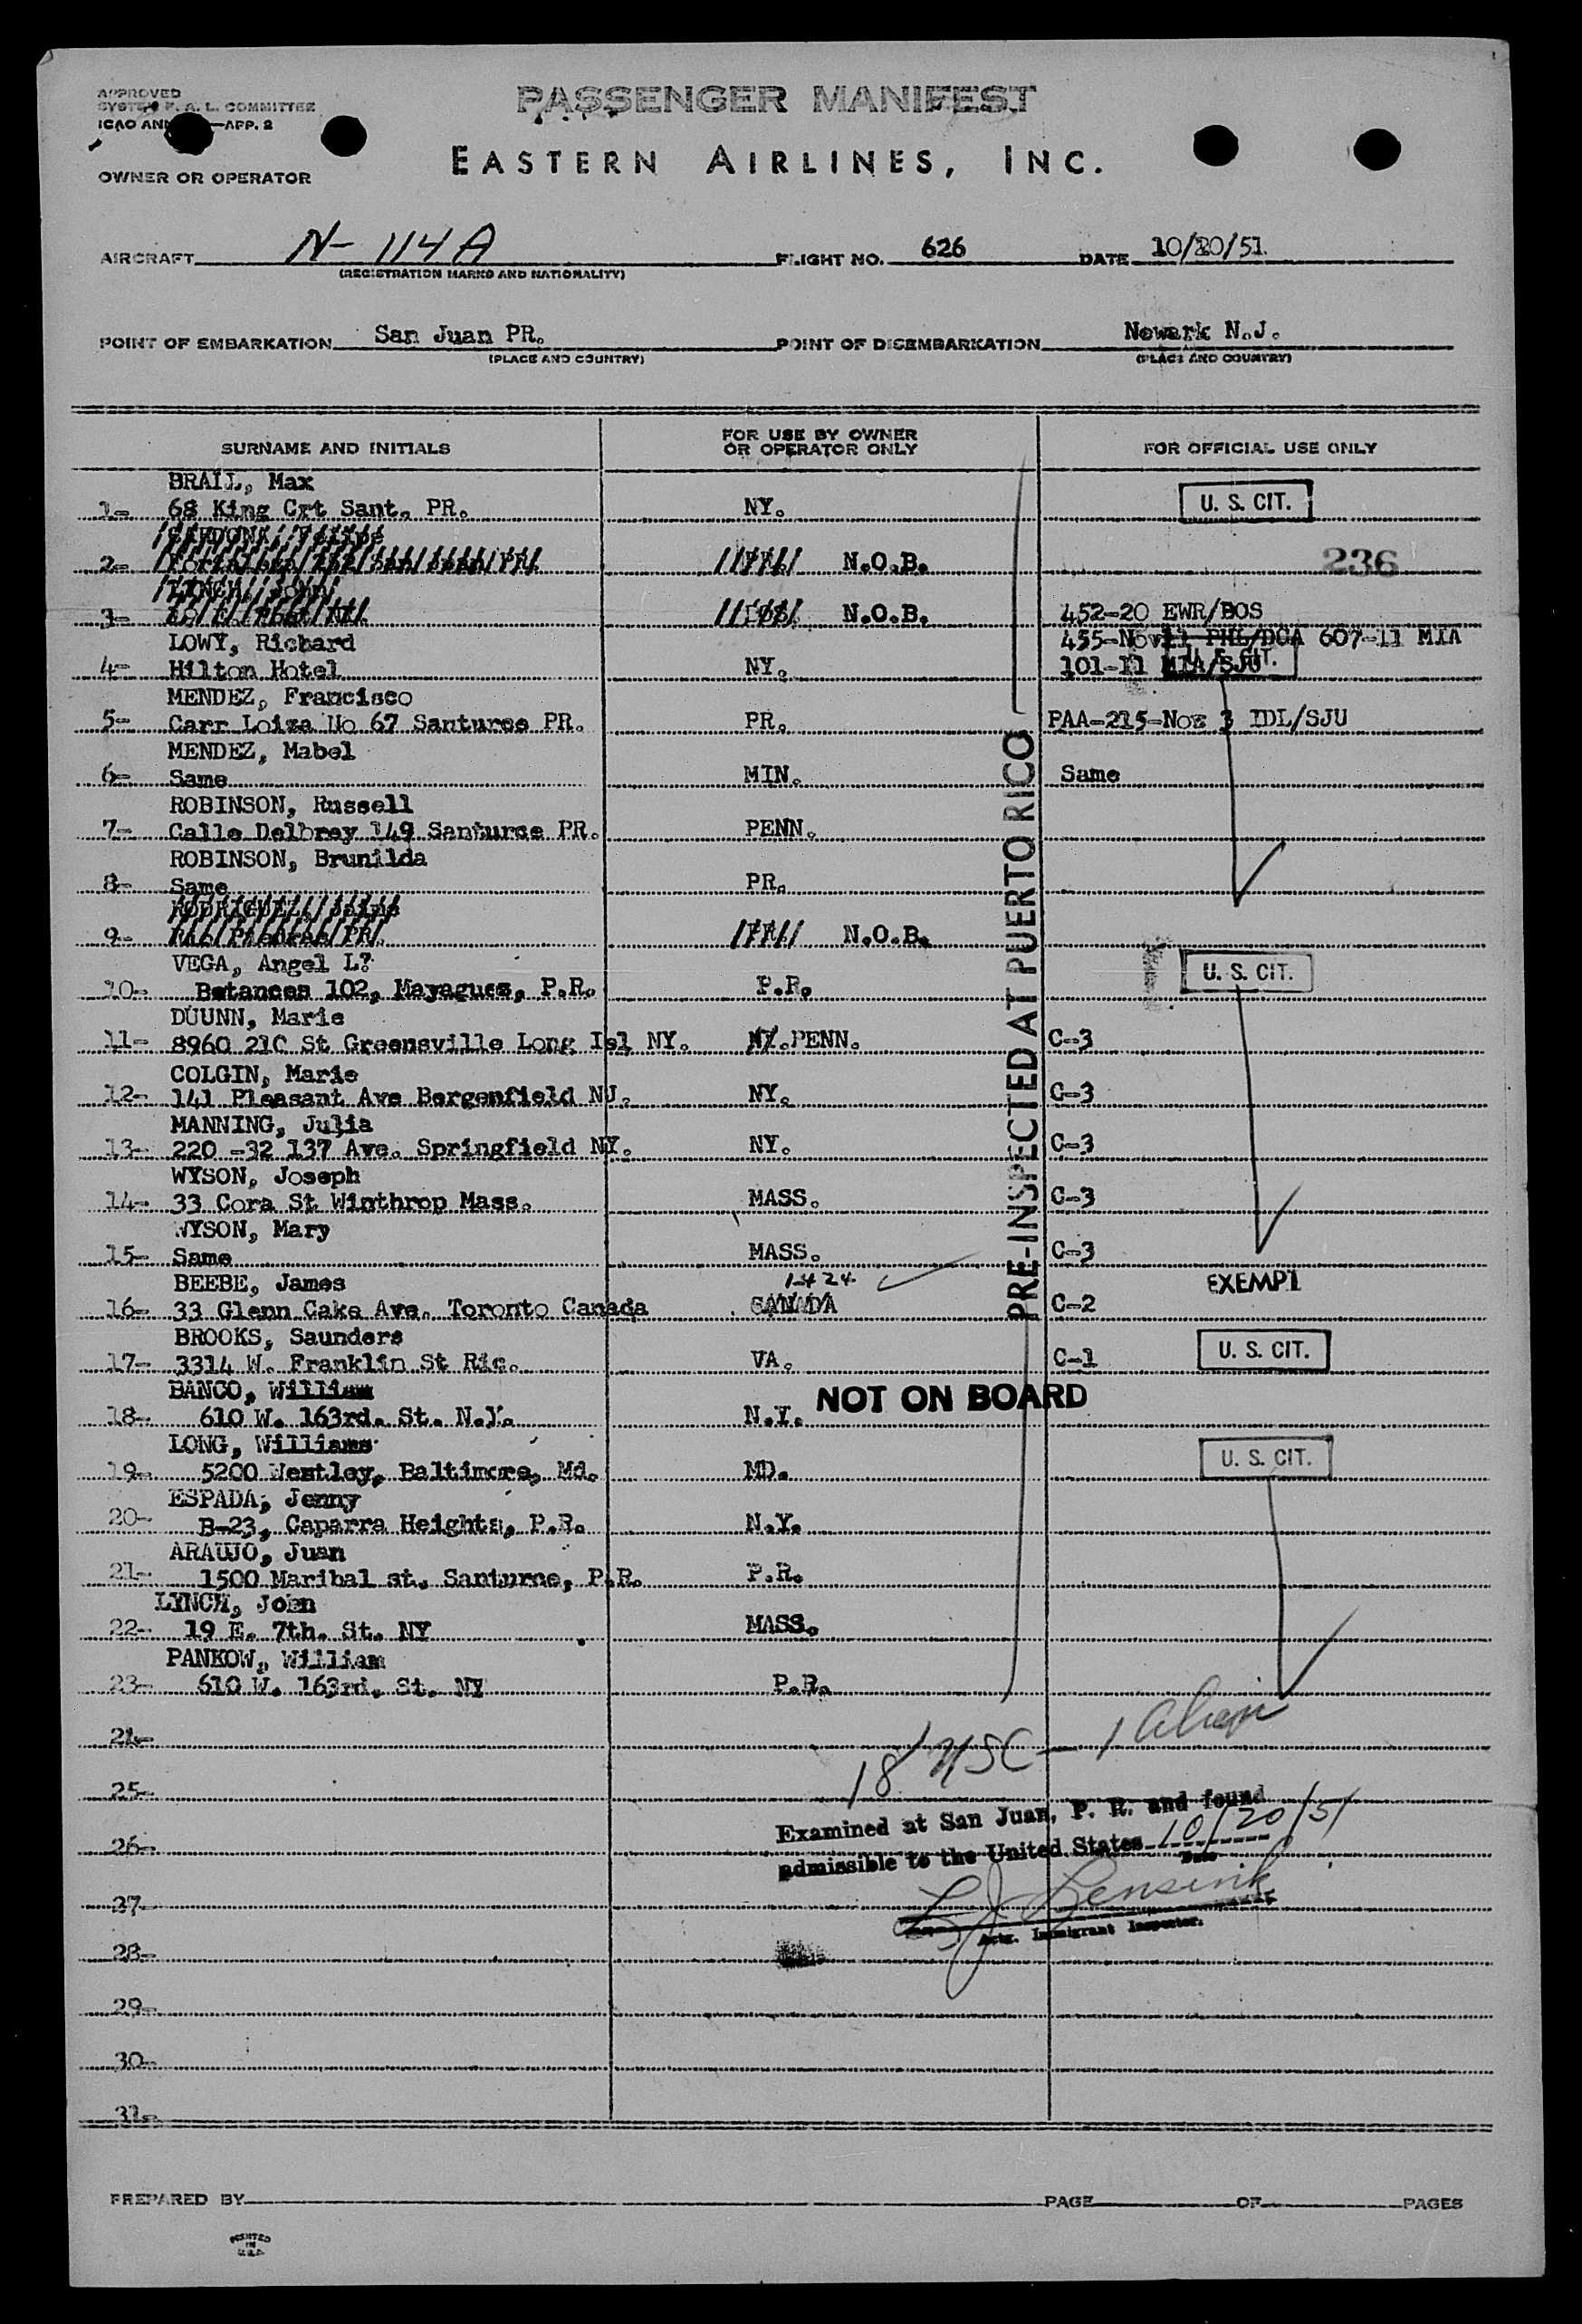 APPROVED
SYSTEM F. A. L. COMMITTEE
ICAO —APP. 2
PASSENGER MANIFEST
EASTERN AIRLINES, INC.
OWNER OR OPERATOR
AIRCRAFT N- 114A FLIGHT NO. 626 DATE 10/20/51
(REGISTRATION MARKS AND NATIONALITY)
POINT OF EMBARKATION San Juan PR. POINT OF DISEMBARKATION Newark N.J.
(PLACE AND COUNTRY) (PLACE AND COUNTRY)
SURNAME AND INITIALS FOR USE BY OWNER OR OPERATOR ONLY FOR OFFICIAL USE ONLY
BRAIL, Max
1- 68 King Crt Sant. PR. NY. U. S. CIT.
CARDONA, Felipe
2- N.O.B. 236
LYNCH, John
3- N.O.B. 452-20 EWR/BOS
LOWY, Richard 455-Nov11 PHL/DCA 607-11 MIA
4- Hilton Hotel NY. 101-11 MIA/SJU
MENDEZ, Francisco
5- Carr Loiza No 67 Santurce PR. PR. PAA-215-Nov 3 IDL/SJU
MENDEZ, Mabel
6- Same MIN. Same
ROBINSON, Russell
7- Calle Delbrey 149 Santurce PR. PENN.
ROBINSON, Brunilda
8- Same PR.
9- N.O.B.
VEGA, Angel L?
10- Betances 102, Mayaguez, P.R. P.R. U. S. CIT.
DUUNN, Marie
11- 8960 21C St Greensville Long Isl NY. NY. PENN. C-3
COLGIN, Marie
12- 141 Pleasant Ave Bergenfield NJ. NY. C-3
MANNING, Julia
13- 220 -32 137 Ave. Springfield NY. NY. C-3
WYSON, Joseph
14- 33 Cora St Winthrop Mass. MASS. C-3
WYSON, Mary
15- Same MASS. C-3
BEEBE, James 1424 EXEMPT
16- 33 Glenn Cake Ave. Toronto Canada CANADA C-2
BROOKS, Saunders
17- 3314 W. Franklin St Ric. VA. C-1 U. S. CIT.
BANCO, William NOT ON BOARD
18- 610 W. 163rd. St. N.Y. N.Y.
LONG, Williams
19- 5200 Westley, Baltimore, Md. MD. U. S. CIT.
ESPADA, Jenny
20- B-23, Caparra Heights, P.R. N.Y.
ARAUJO, Juan
21- 1500 Maribal st. Santurne, P.R. P.R.
LYNCH, John
22- 19 E. 7th. St. NY MASS.
PANKOW, William
23- 610 W. 163rd. St. NY P.R.
PRE-INSPECTED AT PUERTO RICO
24-
18 USC — 1 Alien
25-
Examined at San Juan, P. R. and found
26-
admissible to the United States 10/20/51
Date
27-
Actg. Immigrant Inspector.
28-
29-
30-
31-
PREPARED BY PAGE OF PAGES
PRINTED
IN
U.S.A.